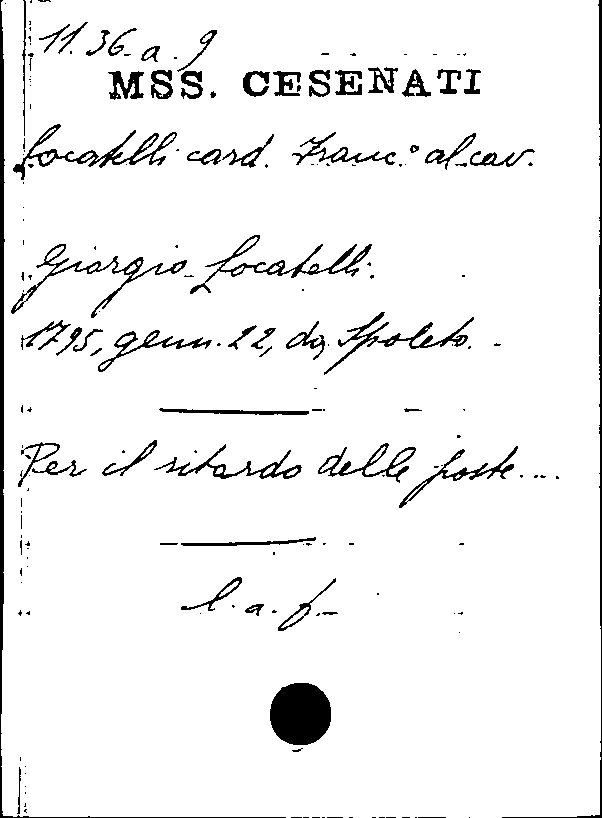 11.36.a.9
MSS. CESENATI
Locatelli card. Franc.° al cav.
Giorgio Locatelli.
1795, genn. 22, da Spoleto.
Per il ritardo delle poste...
l. a. f.